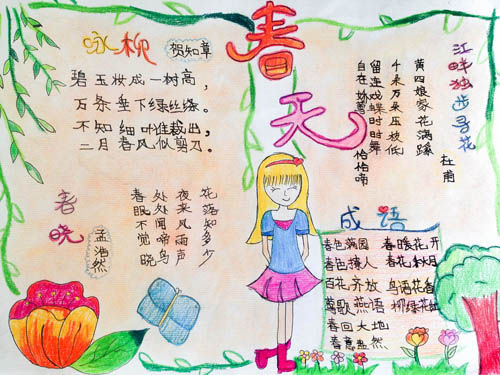 春天
咏柳
贺知章
碧玉妆成一树高,
万条垂下绿丝绦。
不知细叶谁裁出,
二月春风似剪刀。
春晓
孟浩然
春眠不觉晓
处处闻啼鸟
夜来风雨声
花落知多少
江畔独步寻花
杜甫
黄四娘家花满蹊
千朵万朵压枝低
留连戏蝶时时舞
自在娇莺恰恰啼
成语
春色满园 春暖花开
春色撩人 春花秋月
百花齐放 鸟语花香
莺歌燕语 柳绿花红
春回大地
春意盎然